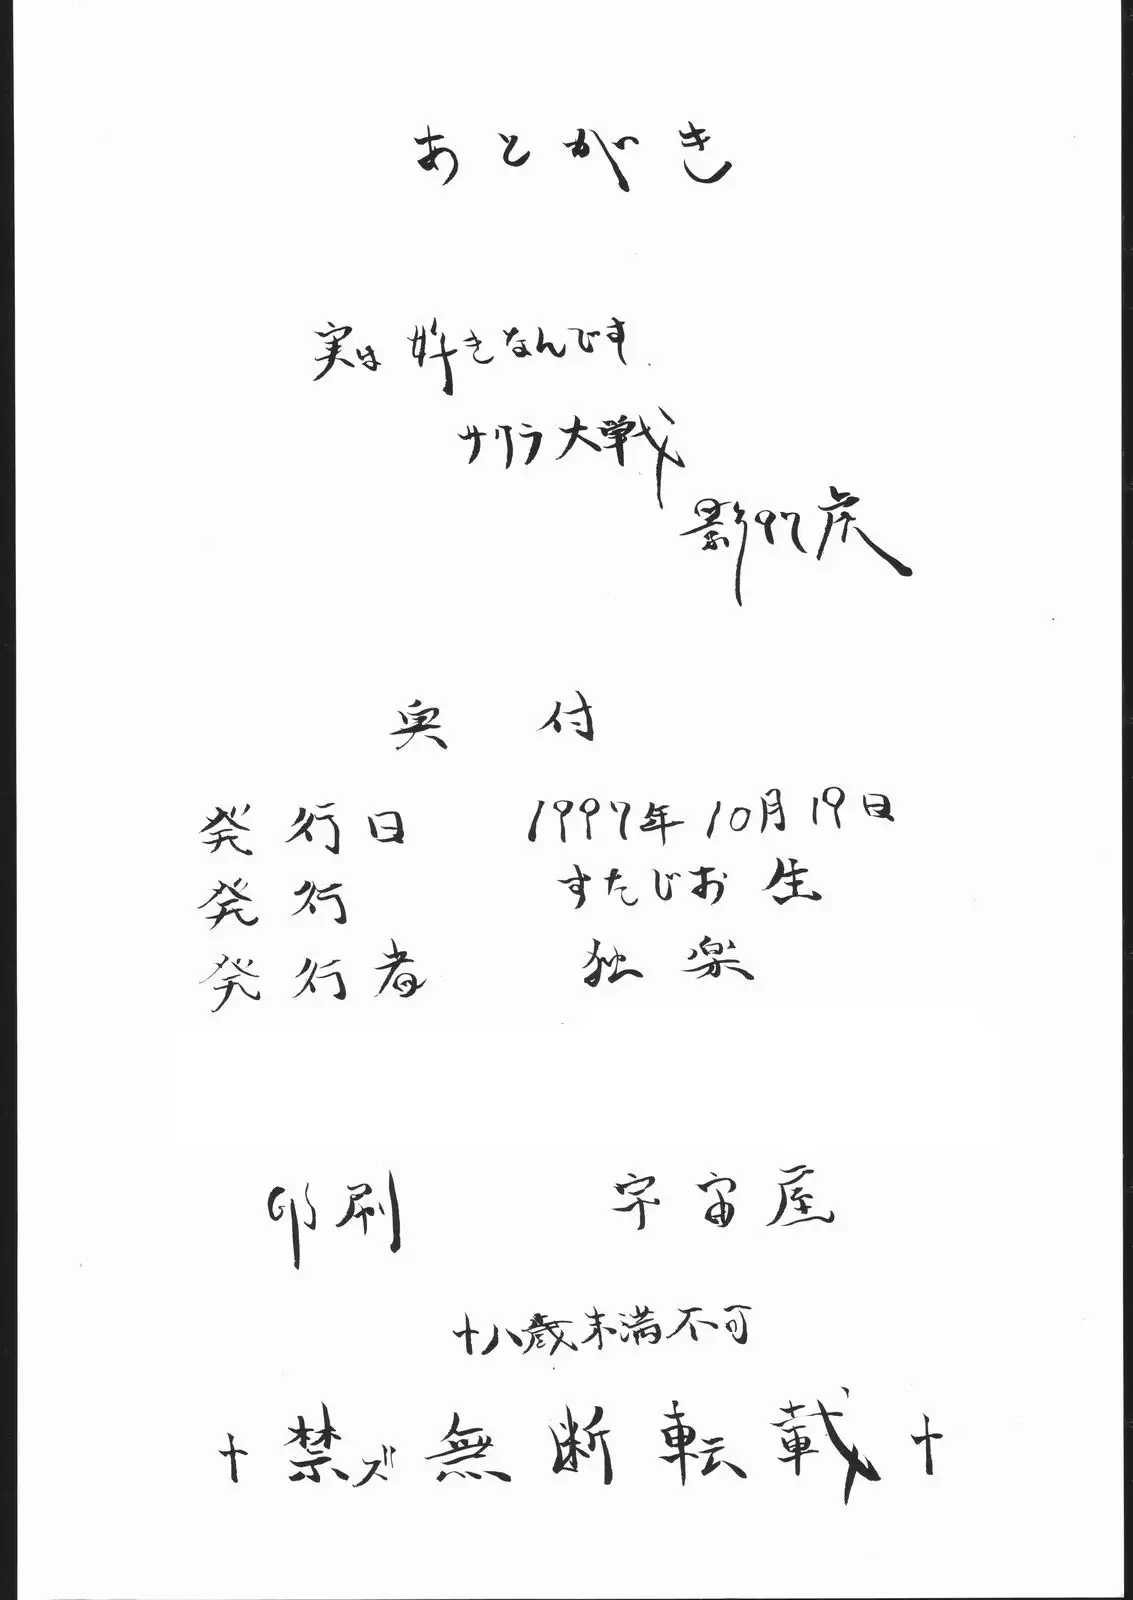 あとがき
実は好きなんです
サクラ大戦
影97虎
奥付
発行日 1997年10月19日
発行 すたじお生
発行者 独楽
印刷 宇宙屋
十八歳未満不可
†禁ズ無断転載†